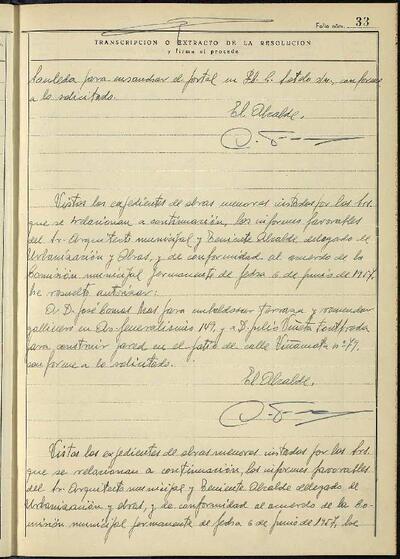 Folio núm. 33
TRANSCRIPCION O EXTRACTO DE LA RESOLUCION
y firma si procede
para ensanchar el portal en conforme
a lo solicitado.
El Alcalde,
Vistos los expedientes de obras menores instados por los Srs.
que se relacionan a continuación, los informes favorables
del Sr. Arquitecto municipal y Teniente Alcalde delegado de
Urbanización y Obras, y de conformidad al acuerdo de la
Comisión municipal permanente de fecha 6 de junio de 1967,
he resuelto autorizar:
A D. José Comas para embaldosar terraza y remendar
gallinero en Av. Generalísimo 149, y a D. Julio
para construir pared en el patio de calle Viñamata nº 79,
conforme a lo solicitado.
El Alcalde,
Vistos los expedientes de obras menores instados por los Srs.
que se relacionan a continuación, los informes favorables
del Sr. Arquitecto municipal y Teniente Alcalde delegado de
Urbanización y obras, y de conformidad al acuerdo de la Co-
misión municipal permanente de fecha 6 de junio de 1967, he